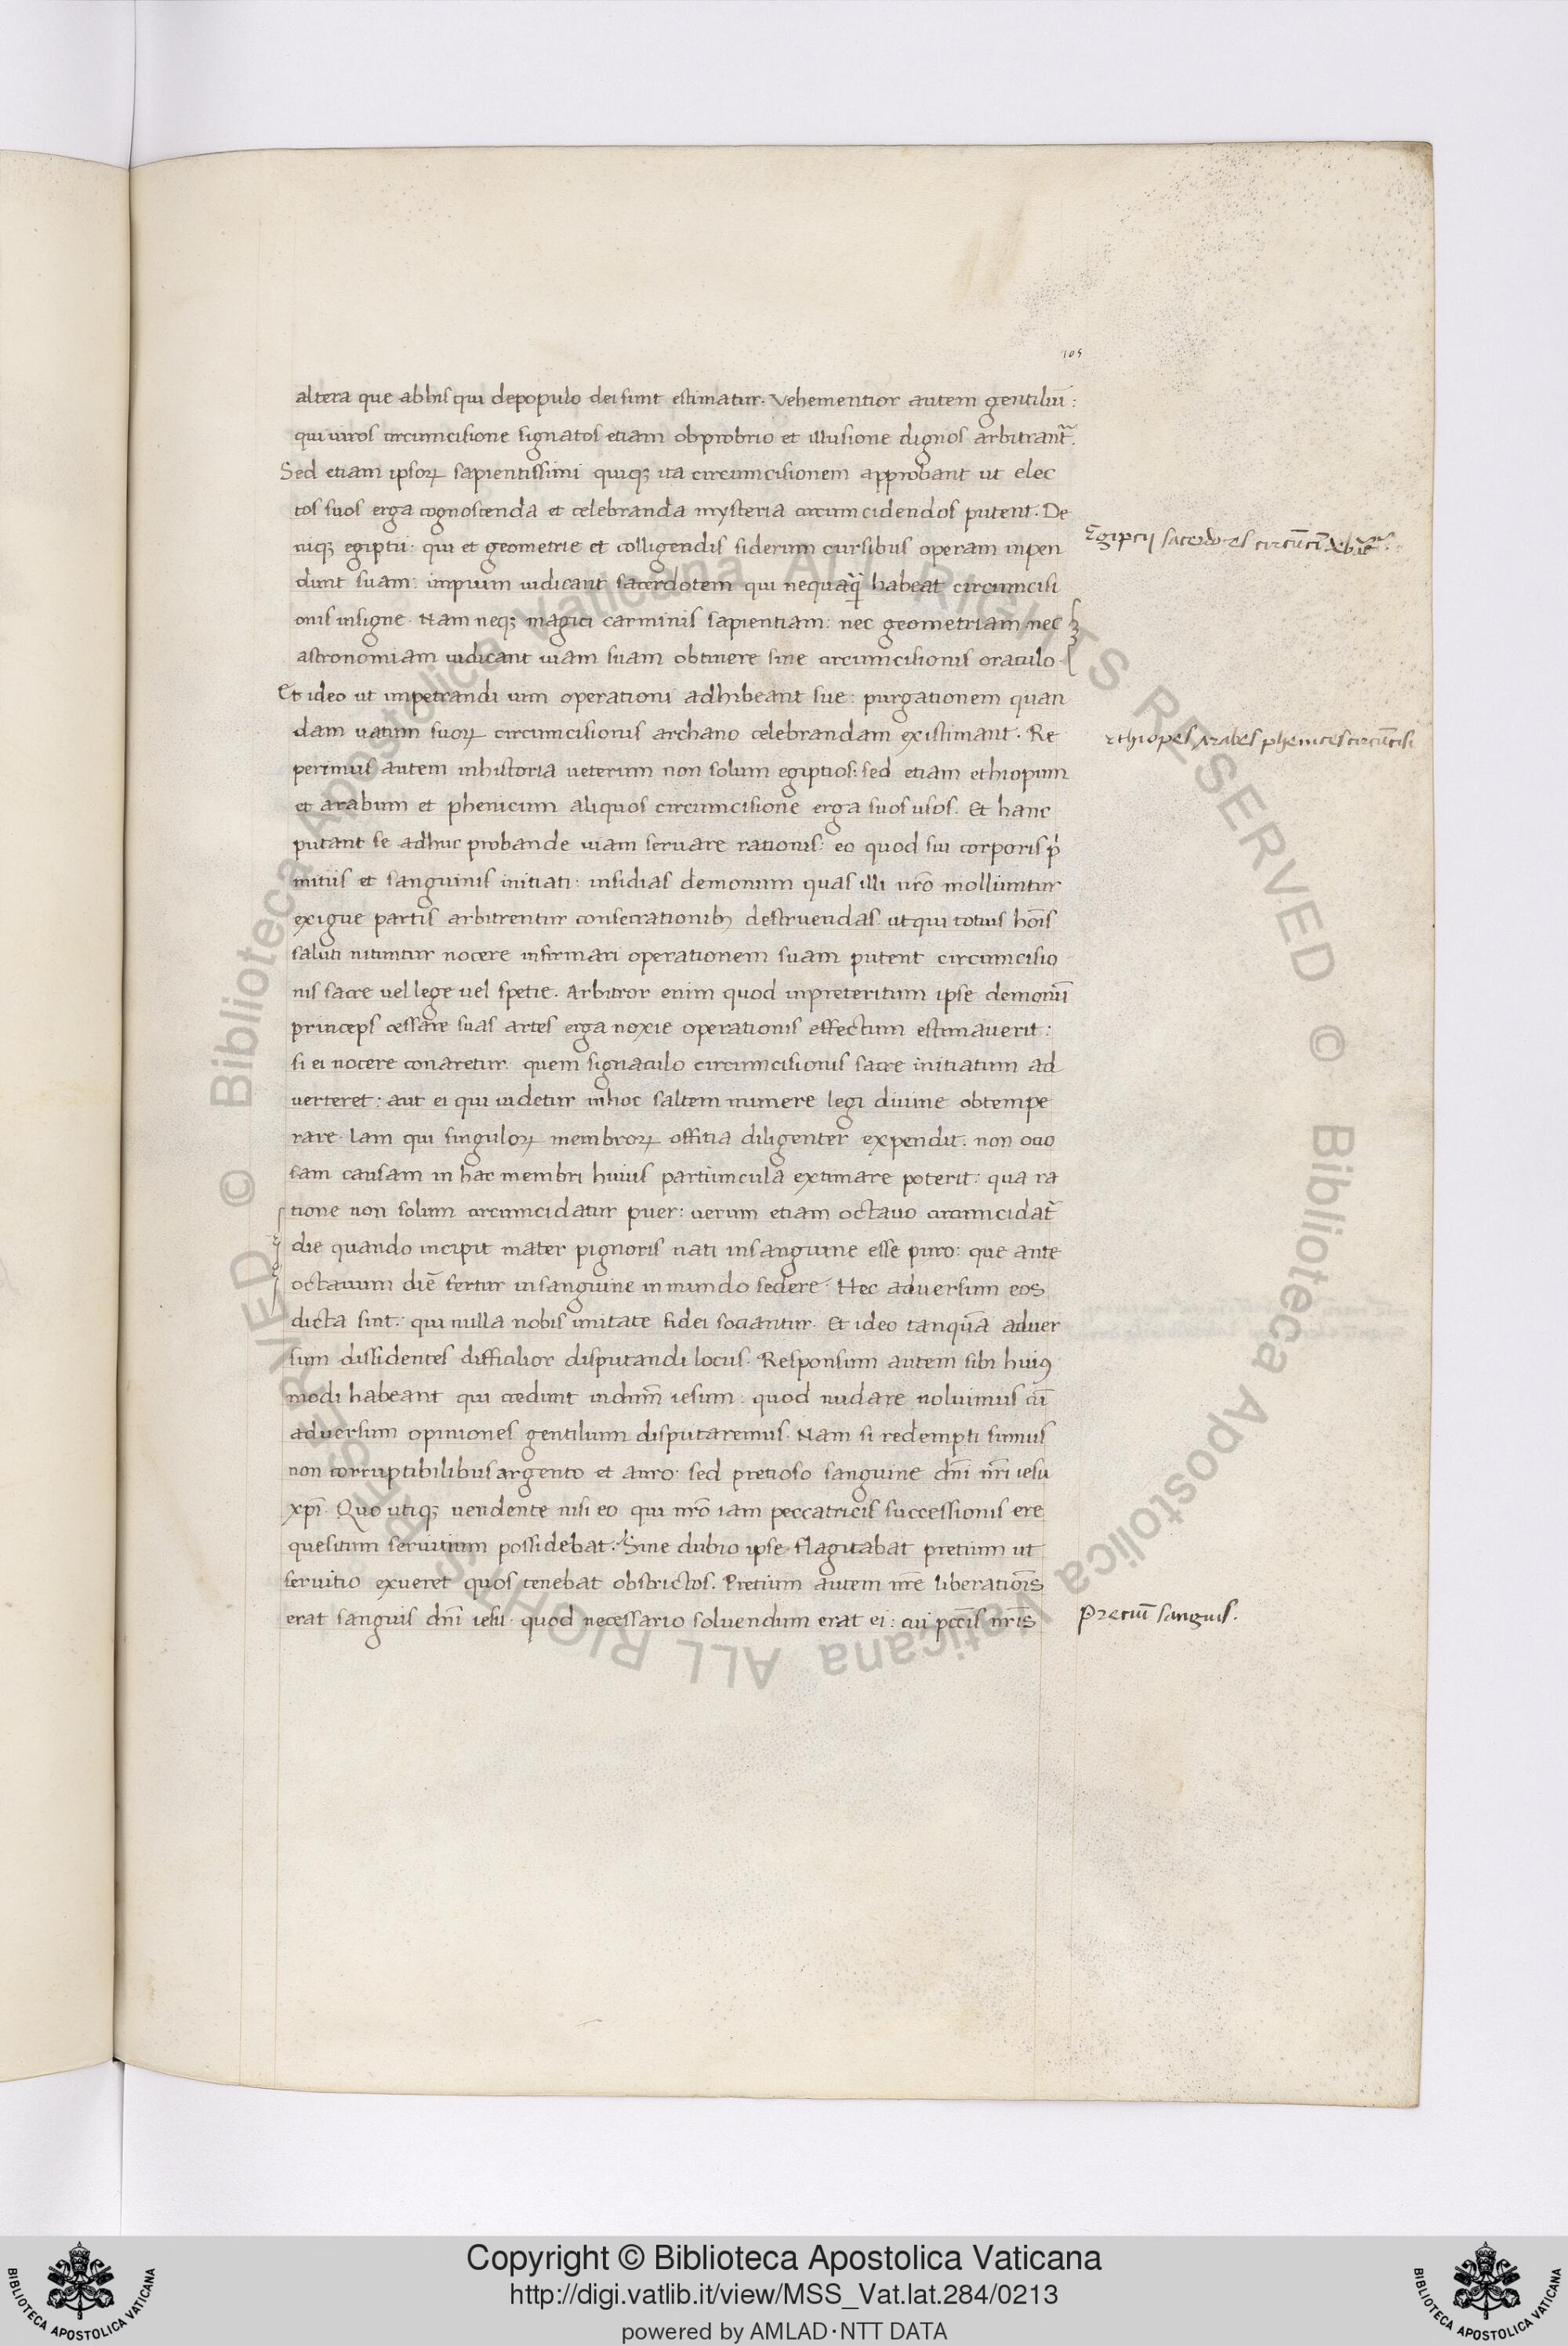 105
altera que abhis qui depopulo dei sunt estimatur. Vehementior autem gentiliū:
qui viros circumcisione signatos etiam obprobrio et illusione dignos arbitrant᷑.
Sed etiam ipsoꝝ sapientissimi quiqꝫ ita circumcisionem approbant ut elec
tos suos erga cognoscenda et celebranda mysteria circumcidendos putent. De
niqꝫ egiptii: qui et geometrie et colligendis siderum cursibus operam inpen
dunt suam: impium iudicant sacerdotem qui nequaq̃ habeat circumcisi
onis insigne. Nam neqꝫ magici carminis sapientiam: nec geometriam nec
astronomiam iudicant uiam suam obtinere sine circumcisionis oraculo.
Et ideo ut impetrandi uim operationi adhibeant sue: purgationem quan
dam uatum suoꝝ circumcisionis archano celebrandam existimant. Re
perimus autem inhistoria ueterum non solum egiptios: sed etiam ethiopum
et arabum et phenicum aliquos circumcisione erga suos usos. Et hanc
putant se adhuc probande uiam seruare rationis: eo quod sui corporis p̓
mitiis et sanguinis initiati: insidias demonum quas illi nr̄o molliuntur
exigue partis arbitrentur consecrationibꝫ destruendas. ut qui totius hoīs
saluti nituntur nocere infirmari operationem suam putent circumcisio
nis sacre uel lege uel spetie. Arbitror enim quod inpreteritum ipse demonū
princeps cessare suas artes erga noxie operationis effectum estimauerit:
si ei nocere conaretur. quem signaculo circumcisionis sacre initiatum ad
uerteret: aut ei qui uidetur inhoc saltem munere legi diuine obtempe
rare. Iam qui singuloꝝ membroꝝ offitia diligenter expendit. non otio
sam causam in hac membri huius partiuncula extimare poterit: qua ra
tione non solum circumcidatur puer: uerum etiam octauo circumcidat᷑
die quando incipit mater pignoris nati insanguine esse puro: que ante
octauum diē fertur insanguine inmundo sedere. Hec aduersum eos
dicta sint: qui nulla nobis unitate fidei sociantur. Et ideo tanquā aduer
sum dissidentes difficilior disputandi locus. Responsum autem sibi huiꝰ
modi habeant qui credunt indn̄m iesum: quod nudare noluimus cū
aduersum opiniones gentilium disputaremus. Nam si redempti sumus
non corruptibilibus argento et auro. sed pretioso sanguine dn̄i nr̄i iesu
xp̄i. Quo utiqꝫ uendente nisi eo qui nr̄o iam peccatricis successionis ere
quesitum seruitium possidebat. Sine dubio ipse flagitabat pretium ut
seruitio exueret quos tenebat obstrictos. Pretium autem nr̄e liberatiōis
erat sanguis dn̄i iesu. quod necessario soluendum erat ei: cui pcc̄is nr̄is
Egiptij sacerdotes
Ethiopes Arabes phenices circūcisi
Preciū sanguis.
© Biblioteca Apostolica Vaticana ALL RIGHTS RESERVED © Biblioteca Apostolica Vaticana ALL RIGHTS RESERVED
BIBLIOTECA APOSTOLICA VATICANA
Copyright © Biblioteca Apostolica Vaticana
http://digi.vatlib.it/view/MSS_Vat.lat.284/0213
powered by AMLAD·NTT DATA
BIBLIOTECA APOSTOLICA VATICANA